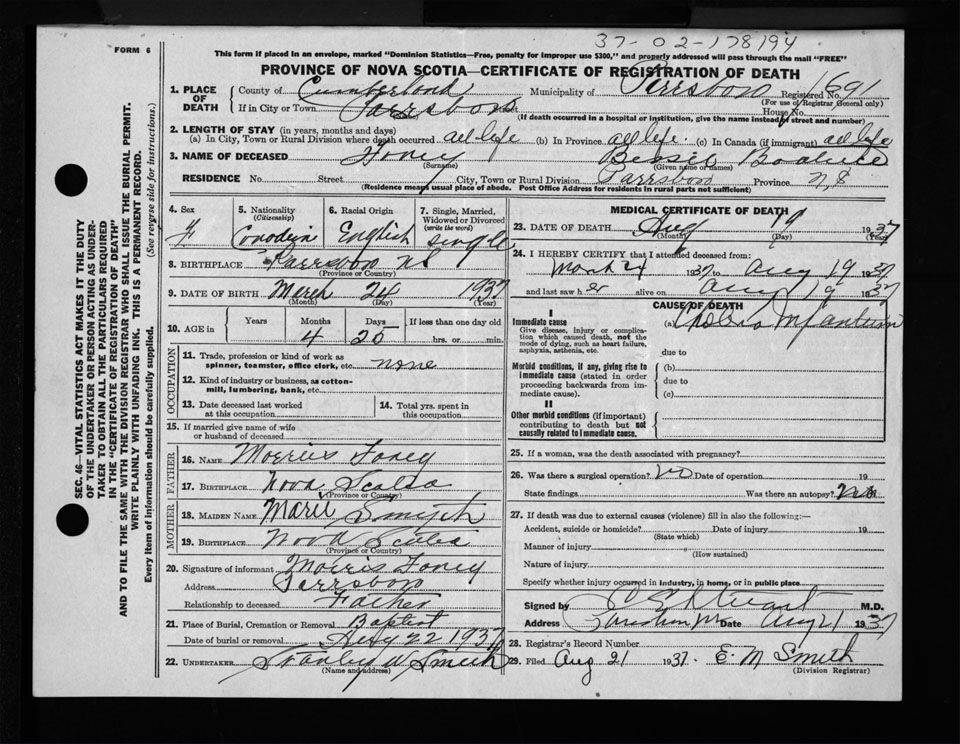 FORM 6
37-02-178194
This form if placed in an envelope, marked "Dominion Statistics—Free, penalty for improper use $300," and properly addressed will pass through the mail "FREE"
PROVINCE OF NOVA SCOTIA—CERTIFICATE OF REGISTRATION OF DEATH
1. PLACE OF DEATH
County of Cumberland Municipality of Parrsboro Registered No. 1691
(For use of Registrar General only)
If in City or Town Parrsboro House No.
(If death occurred in a hospital or institution, give the name instead of street and number)
2. LENGTH OF STAY (in years, months and days)
(a) In City, Town or Rural Division where death occurred all life (b) In Province all life (c) In Canada (if immigrant) all life
3. NAME OF DECEASED Foney Bessie
(Surname) (Given name or names)
RESIDENCE No. Street City, Town or Rural Division Parrsboro Province N.S
(Residence means usual place of abode. Post Office Address for residents in rural parts not sufficient)
4. Sex F
5. Nationality (Citizenship) Canadian
6. Racial Origin English
7. Single, Married, Widowed or Divorced (write the word) single
8. BIRTHPLACE Parrsboro NS
(Province or Country)
9. DATE OF BIRTH March 24 1937
(Month) (Day) (Year)
10. AGE in Years Months 4 Days 25 If less than one day old hrs. or min.
OCCUPATION
11. Trade, profession or kind of work as spinner, teamster, office clerk, etc. none
12. Kind of industry or business, as cotton-mill, lumbering, bank, etc.
13. Date deceased last worked at this occupation
14. Total yrs. spent in this occupation
15. If married give name of wife or husband of deceased
FATHER
16. NAME Morris Foney
17. BIRTHPLACE Nova Scotia
(Province or Country)
MOTHER
18. MAIDEN NAME Marie Smith
19. BIRTHPLACE Nova Scotia
(Province or Country)
20. Signature of informant Morris Foney
Address Parrsboro
Relationship to deceased Father
21. Place of Burial, Cremation or Removal Baptist
Date of burial or removal Aug 22 1937
22. UNDERTAKER Stanley W Smith
(Name and address)
MEDICAL CERTIFICATE OF DEATH
23. DATE OF DEATH Aug 19 1937
(Month) (Day) (Year)
24. I HEREBY CERTIFY that I attended deceased from:
March 24 1937 to Aug 19 1937
and last saw her alive on Aug 19 1937
CAUSE OF DEATH
I
Immediate cause
Give disease, injury or complication which caused death, not the mode of dying, such as heart failure, asphyxia, asthenia, etc.
(a) Cholera Infantum
due to
Morbid conditions, if any, giving rise to immediate cause (stated in order proceeding backwards from immediate cause)
(b)
due to
(c)
II
Other morbid conditions (if important) contributing to death but not causally related to immediate cause.
25. If a woman, was the death associated with pregnancy?
26. Was there a surgical operation? No Date of operation 19
State findings Was there an autopsy? No
27. If death was due to external causes (violence) fill in also the following:—
Accident, suicide or homicide? Date of injury 19
(State which)
Manner of injury
(How sustained)
Nature of injury
Specify whether injury occurred in industry, in home, or in public place
Signed by M.D.
Address Date Aug 21 1937
28. Registrar's Record Number
29. Filed Aug 21 1937. E. M Smith
(Division Registrar)
SEC. 46—VITAL STATISTICS ACT MAKES IT THE DUTY
OF THE UNDERTAKER OR PERSON ACTING AS UNDER-
TAKER TO OBTAIN ALL THE PARTICULARS REQUIRED
IN THE "CERTIFICATE OF REGISTRATION OF DEATH"
AND TO FILE THE SAME WITH THE DIVISION REGISTRAR WHO SHALL ISSUE THE BURIAL PERMIT.
WRITE PLAINLY WITH UNFADING INK. THIS IS A PERMANENT RECORD.
Every item of information should be carefully supplied. (See reverse side for instructions.)